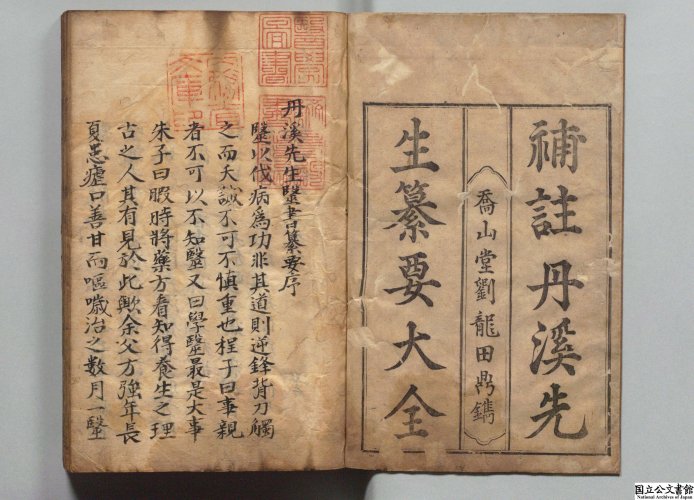 補註丹溪先
喬山堂劉龍田鼎鐫
生纂要大全
丹溪先生醫書纂要序
醫以伐病爲功非其道則逆鋒背刀觸
之而夭誠不可不慎重也程子曰事親
者不可以不知醫又曰學醫最是大事
朱子曰暇時將藥方看知得養生之理
古之人其有見於此歟余父方強年長
夏患瘧口善甘而嘔噦治之數月一醫
国立公文書館
National Archives of Japan